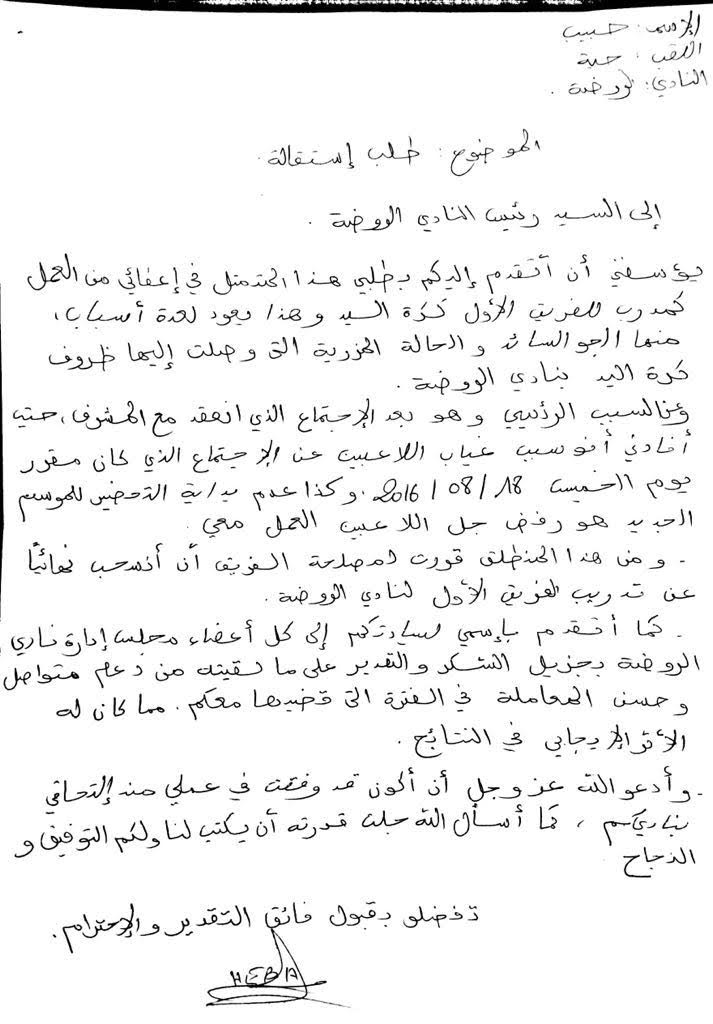 الإسم: حبيب
اللقب: حبة
النادي: الروضة.
الموضوع: طلب إستقالة.
إلى السيد رئيس النادي الروضة.
يؤسفني أن أتقدم إليكم بطلبي هذا المتمثل في إعفائي من العمل
كمدرب للفريق الأول كرة اليد وهذا يعود لعدة أسباب،
منها الجو السائد والحالة المزرية التي وصلت إليها ظروف
كرة اليد بنادي الروضة.
السبب الرئسي وهو بعد الإجتماع الذي انعقد مع المشرف، حيث
أفادني أنو سبب غياب اللاعبين عن الإجتماع الذي كان مقرر
يوم الخميس 18/08/2016. وكذا عدم بداية التحضير للموسم
الجديد هو رفض جل اللاعبين العمل معي.
. ومن هذا المنطلق قررت لمصلحة الفريق أن أنسحب نهائيًا
عن تدريب الفريق الأول لنادي الروضة.
. كما أتقدم بإسمي لسيادتكم إلى كل أعضاء مجلس إدارة نادي
الروضة بجزيل الشكر والتقدير على ما لقيته من دعم متواصل
وحسن المعاملة في الفترة التي قضيتها معكم. مما كان له
الأثر الإيجابي في النتائج.
. وأدعو الله عز وجل أن أكون قد وفقت في عملي منذ إلتحاقي
بناديكم، كما أسأل الله جلت قدرته أن يكتب لنا ولكم التوفيق و
النجاح
تفضلو بقبول فائق التقدير والإحترام.
HEBA